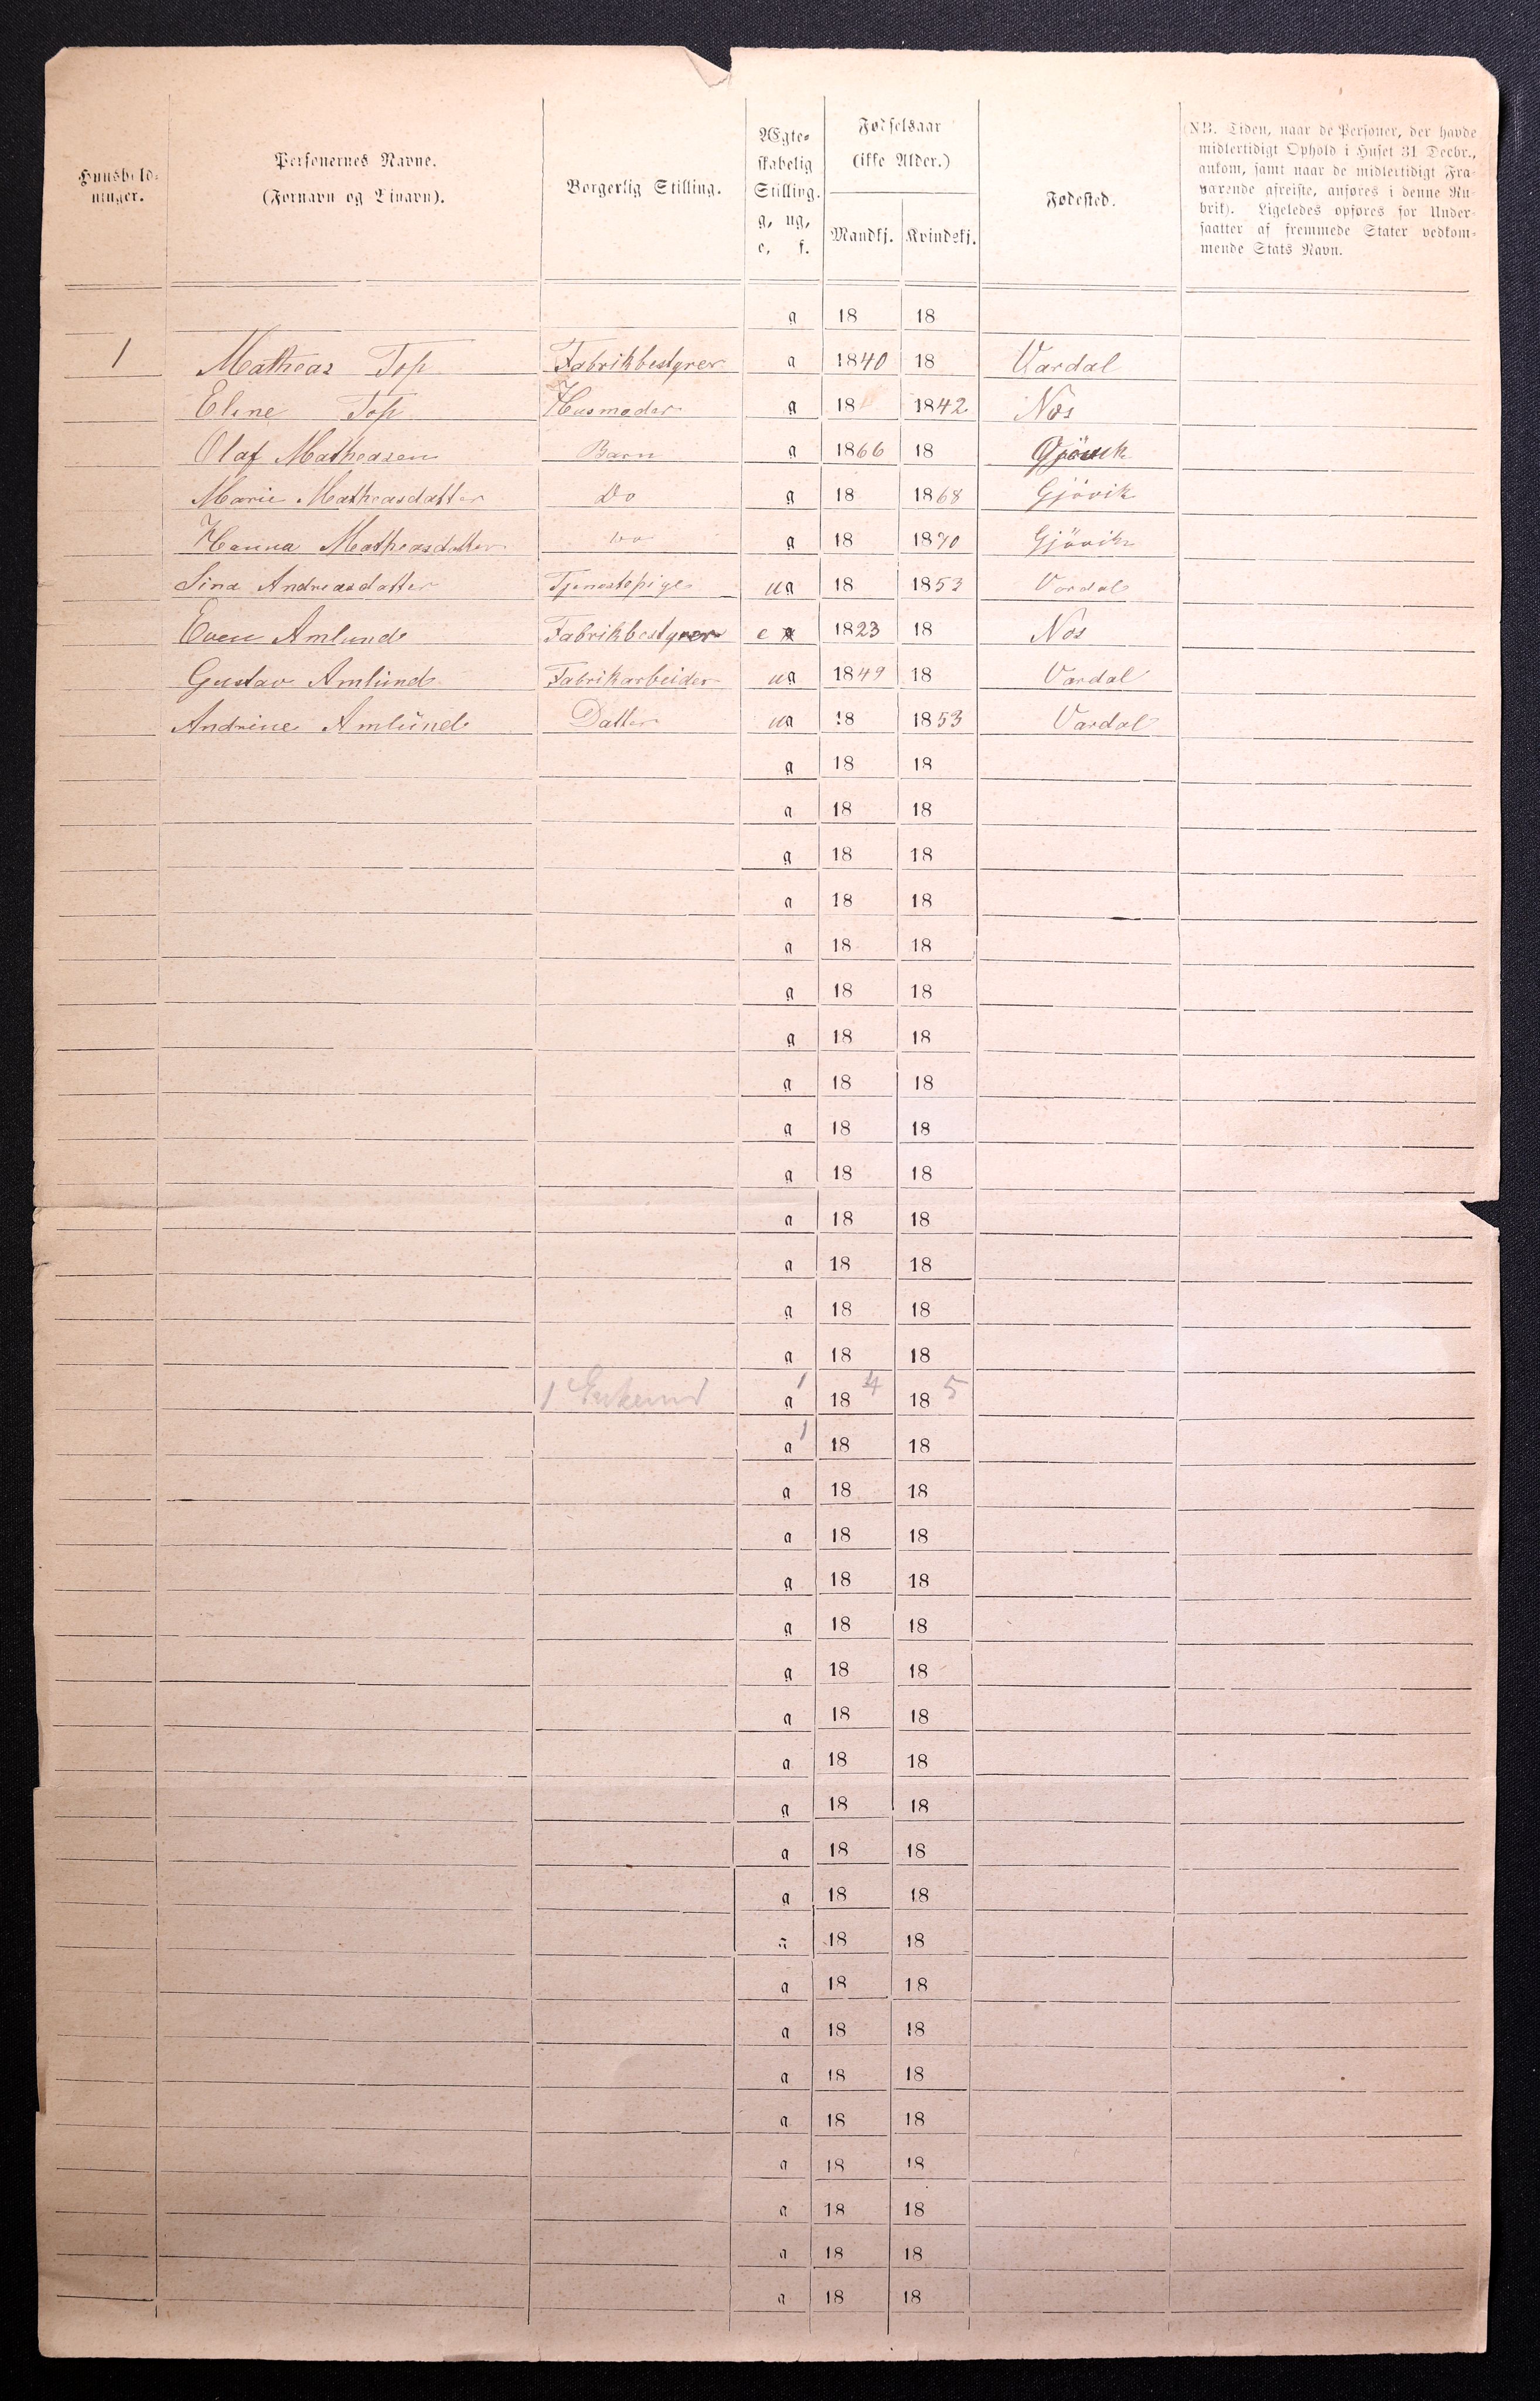 Huushold-
ninger.
Personernes Navne.
(Fornavn og Tinavn).
Borgerlig Stilling.
Ægte-
skabelig
Stilling.
g, ug,
e, f.
Fødselsaar
(ikke Alder.)
Mandkj. Kvindekj.
Fødested.
(NB. Tiden, naar de Personer, der havde
midlertidigt Ophold i Huset 31 Decbr.,
ankom, samt naar de midlertidigt Fra-
værende afreiste, anføres i denne Ru-
brik). Ligeledes opføres for Under-
saatter af fremmede Stater vedkom-
mende Stats Navn.
g 18 18
1 Matheas Top Fabrikbestyrer g 1840 18 Vardal
Eline Top Husmoder g 18 1842 Nes
Olaf Matheasen Barn g 1866 18 Gjövik
Marie Matheasdatter Do g 18 1868 Gjövik
Hanna Matheasdatter Do g 18 1870 Gjövik
Lina Andreasdatter Tjenestepige ug 18 1853 Vardal
Even Amlund Fabrikbestyrer e g 1823 18 Nes
Gustav Amlund Fabrikarbeider ug 1849 18 Vardal
Andrine Amlund Datter ug 18 1853 Vardal
g 18 18
g 18 18
g 18 18
g 18 18
g 18 18
g 18 18
g 18 18
g 18 18
g 18 18
g 18 18
g 18 18
g 18 18
g 18 18
g 18 18
1 Enkemd g 1 18 4 18 5
g 1 18 18
g 18 18
g 18 18
g 18 18
g 18 18
g 18 18
g 18 18
g 18 18
g 18 18
g 18 18
g 18 18
g 18 18
g 18 18
g 18 18
g 18 18
g 18 18
g 18 18
g 18 18
g 18 18
g 18 18